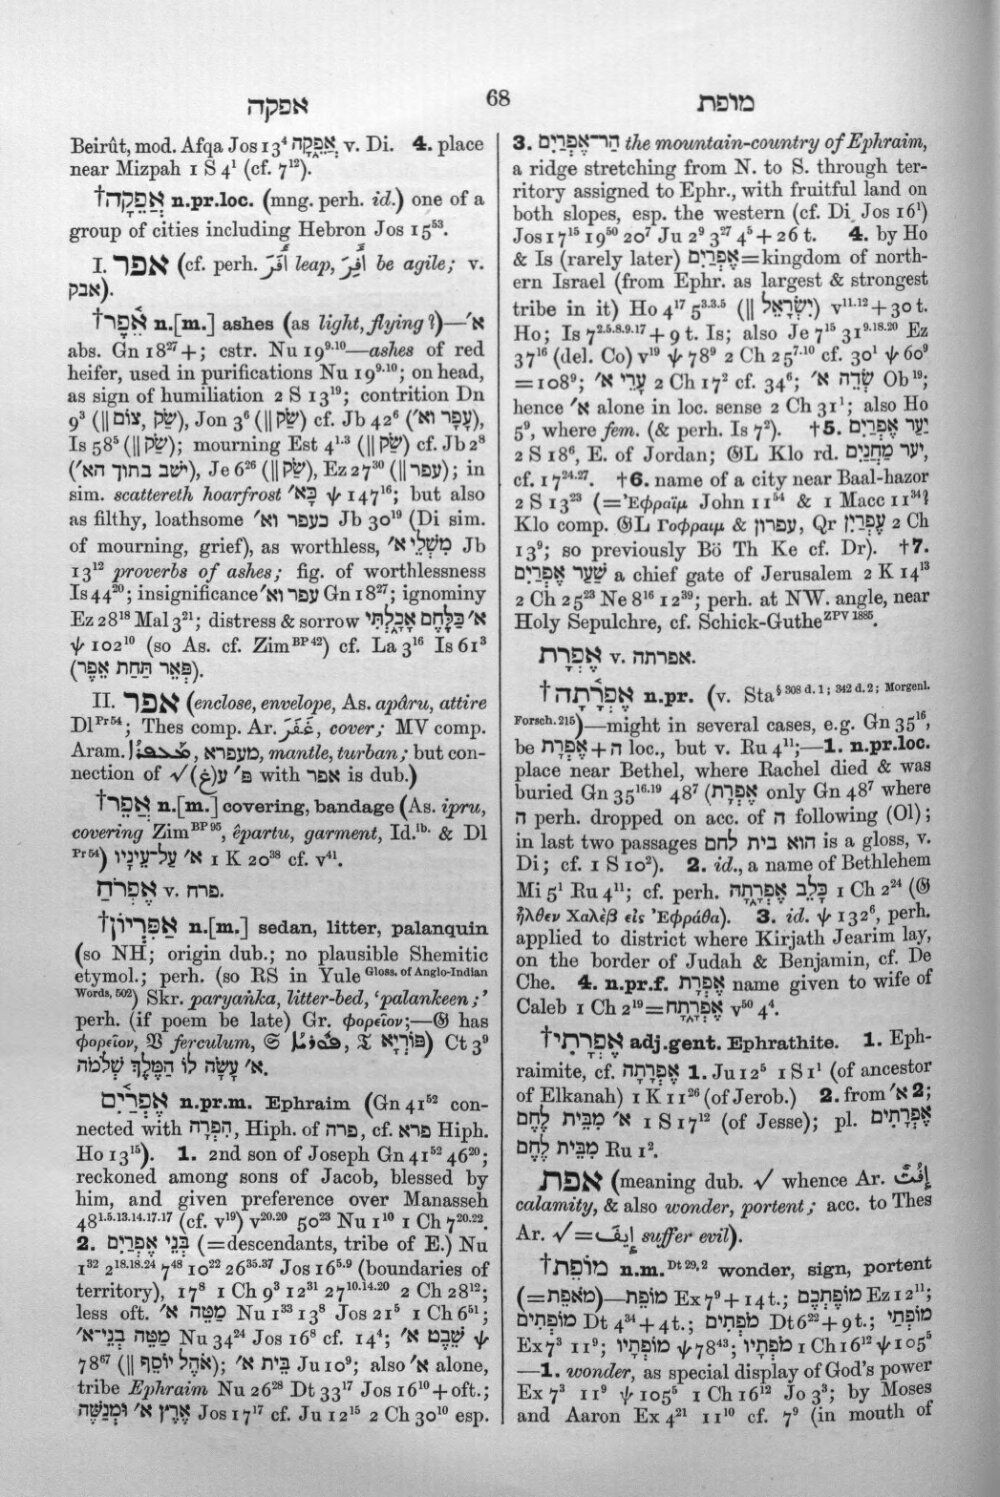 אפקה
68
מופת
Beirût, mod. Afqa Jos 13⁴ אֲפֵקָה, v. Di. 4. place
near Mizpah 1 S 4¹ (cf. 7¹²).
†אֲפֵקָה n.pr.loc. (mng. perh. id.) one of a
group of cities including Hebron Jos 15⁵³.
I. אפר (cf. perh. أَفَرَ leap, أَفِرَ be agile; v.
אבק).
†אֵ֫פֶר n.[m.] ashes (as light, flying?)—א׳
abs. Gn 18²⁷+; cstr. Nu 19⁹·¹⁰—ashes of red
heifer, used in purifications Nu 19⁹·¹⁰; on head,
as sign of humiliation 2 S 13¹⁹; contrition Dn
9³ (‖ צוֹם, שַׂק), Jon 3⁶ (‖ שַׂק) cf. Jb 42⁶ (עָפָר וא׳),
Is 58⁵ (‖ שַׂק); mourning Est 4¹·³ (‖ שַׂק) cf. Jb 2⁸
(ישב בתוך הא׳), Je 6²⁶ (‖ שַׂק), Ez 27³⁰ (‖ עפר); in
sim. scattereth hoarfrost כָּא׳ ψ 147¹⁶; but also
as filthy, loathsome כעפר וא׳ Jb 30¹⁹ (Di sim.
of mourning, grief), as worthless, מִשְׁלֵי א׳ Jb
13¹² proverbs of ashes; fig. of worthlessness
Is 44²⁰; insignificance עפר וא׳ Gn 18²⁷; ignominy
Ez 28¹⁸ Mal 3²¹; distress & sorrow א׳ כַּלֶּחֶם אָכָלְתִּי
ψ 102¹⁰ (so As. cf. Zim ᴮᴾ⁴²) cf. La 3¹⁶ Is 61³
(פְּאֵר תַּחַת אֵפֶר).
II. אפר (enclose, envelope, As. apâru, attire
Dl Pr 54; Thes comp. Ar. غَفَرَ, cover; MV comp.
Aram. מעפרא, mantle, turban; but con-
nection of √ע(غ) פ׳ with אפר is dub.)
†אֲפֵר n.[m.] covering, bandage (As. ipru,
covering Zim BP 95, êpartu, garment, Id. ib. & Dl
Pr 54) א׳ עַל־עֵינָיו 1 K 20³⁸ cf. v⁴¹.
אֶפְרֹחַ v. פרח.
†אַפִּרְיוֹן n.[m.] sedan, litter, palanquin
(so NH; origin dub.; no plausible Shemitic
etymol.; perh. (so RS in Yule Gloss. of Anglo-Indian
Words, 502) Skr. paryañka, litter-bed, ‘palankeen;’
perh. (if poem be late) Gr. φορεῖον;—𝔊 has
φορεῖον, 𝔙 ferculum, 𝔖 , 𝔗 פּוֹרְיָא) Ct 3⁹
א׳ עָשָׂה לוֹ הַמֶּלֶךְ שְׁלֹמֹה.
אֶפְרַ֫יִם n.pr.m. Ephraim (Gn 41⁵² con-
nected with הִפְרָה, Hiph. of פרה, cf. פרא Hiph.
Ho 13¹⁵). 1. 2nd son of Joseph Gn 41⁵² 46²⁰;
reckoned among sons of Jacob, blessed by
him, and given preference over Manasseh
48¹·⁵·¹³·¹⁴·¹⁷·¹⁷ (cf. v¹⁹) v²⁰·²⁰ 50²³ Nu 1¹⁰ 1 Ch 7²⁰·²².
2. בְּנֵי אֶפְרַיִם (=descendants, tribe of E.) Nu
1³² 2¹⁸·¹⁸·²⁴ 7⁴⁸ 10²² 26³⁵·³⁷ Jos 16⁵·⁹ (boundaries of
territory), 17⁸ 1 Ch 9³ 12³¹ 27¹⁰·¹⁴·²⁰ 2 Ch 28¹²;
less oft. מַטֵּה א׳ Nu 1³³ 13⁸ Jos 21⁵ 1 Ch 6⁵¹;
מַטֵּה בְנֵי־א׳ Nu 34²⁴ Jos 16⁸ cf. 14⁴; שֵׁבֶט א׳ ψ
78⁶⁷ (‖ אֹהֶל יוֹסֵף); בֵּית א׳ Ju 10⁹; also א׳ alone,
tribe Ephraim Nu 26²⁸ Dt 33¹⁷ Jos 16¹⁰+oft.;
אֶרֶץ א׳ וּמְנַשֶּׁה Jos 17¹⁷ cf. Ju 12¹⁵ 2 Ch 30¹⁰ esp.
3. הַר־אֶפְרַיִם the mountain-country of Ephraim,
a ridge stretching from N. to S. through ter-
ritory assigned to Ephr., with fruitful land on
both slopes, esp. the western (cf. Di Jos 16¹)
Jos 17¹⁵ 19⁵⁰ 20⁷ Ju 2⁹ 3²⁷ 4⁵+26 t. 4. by Ho
& Is (rarely later) אֶפְרַיִם=kingdom of north-
ern Israel (from Ephr. as largest & strongest
tribe in it) Ho 4¹⁷ 5³·³·⁵ (‖ יִשְׂרָאֵל) v¹¹·¹²+30 t.
Ho; Is 7²·⁵·⁸·⁹·¹⁷+9 t. Is; also Je 7¹⁵ 31⁹·¹⁸·²⁰ Ez
37¹⁶ (del. Co) v¹⁹ ψ 78⁹ 2 Ch 25⁷·¹⁰ cf. 30¹ ψ 60⁹
=108⁹; עָרֵי א׳ 2 Ch 17² cf. 34⁶; שְׂדֵה א׳ Ob¹⁹;
hence א׳ alone in loc. sense 2 Ch 31¹; also Ho
5⁹, where fem. (& perh. Is 7²). †5. יַעַר אֶפְרַיִם
2 S 18⁶, E. of Jordan; 𝔊L Klo rd. יער מַחֲנַיִם,
cf. 17²⁴·²⁷. †6. name of a city near Baal-hazor
2 S 13²³ (=Ἐφραΐμ John 11⁵⁴ & 1 Macc 11³⁴?
Klo comp. 𝔊L Γοφραιμ & עפרון, Qr עֶפְרַיִן 2 Ch
13⁹; so previously Bö Th Ke cf. Dr). †7.
שַׁעַר אֶפְרַיִם a chief gate of Jerusalem 2 K 14¹³
2 Ch 25²³ Ne 8¹⁶ 12³⁹; perh. at NW. angle, near
Holy Sepulchre, cf. Schick-Guthe ZPV 1885.
אֶפְרָת v. אפרתה.
†אֶפְרָ֫תָה n.pr. (v. Sta § 308 d. 1; 342 d. 2; Morgenl.
Forsch. 215)—might in several cases, e.g. Gn 35¹⁶,
be אֶפְרָת+ה loc., but v. Ru 4¹¹;—1. n.pr.loc.
place near Bethel, where Rachel died & was
buried Gn 35¹⁶·¹⁹ 48⁷ (אֶפְרָת only Gn 48⁷ where
ה perh. dropped on acc. of ה following (Ol);
in last two passages הוא בית לחם is a gloss, v.
Di; cf. 1 S 10²). 2. id., a name of Bethlehem
Mi 5¹ Ru 4¹¹; cf. perh. כָּלֵב אֶפְרָתָה 1 Ch 2²⁴ (𝔊
ἦλθεν Χαλὲβ εἰς Ἐφράθα). 3. id. ψ 132⁶, perh.
applied to district where Kirjath Jearim lay,
on the border of Judah & Benjamin, cf. De
Che. 4. n.pr.f. אֶפְרָת name given to wife of
Caleb 1 Ch 2¹⁹=אֶפְרָתָה v⁵⁰ 4⁴.
†אֶפְרָתִי adj.gent. Ephrathite. 1. Eph-
raimite, cf. אֶפְרָתָה 1. Ju 12⁵ 1 S 1¹ (of ancestor
of Elkanah) 1 K 11²⁶ (of Jerob.) 2. from א׳ 2;
א׳ מִבֵּית לֶחֶם 1 S 17¹² (of Jesse); pl. אֶפְרָתִים
מִבֵּית לֶחֶם Ru 1².
אפת (meaning dub. √ whence Ar. إِفْتٌ
calamity, & also wonder, portent; acc. to Thes
Ar. √= إِيفَ suffer evil).
†מוֹפֵת n.m. Dt 29, 2 wonder, sign, portent
(=מֹאפֵת)—מוֹפֵת Ex 7⁹+14 t.; מוֹפֶתְכֶם Ez 12¹¹;
מוֹפְתִים Dt 4³⁴+4 t.; מֹפְתִים Dt 6²²+9 t.; מוֹפְתַי
Ex 7³ 11⁹; מוֹפְתָיו ψ 78⁴³; מֹפְתָיו 1 Ch 16¹² ψ 105⁵
—1. wonder, as special display of God’s power
Ex 7³ 11⁹ ψ 105⁵ 1 Ch 16¹² Jo 3³; by Moses
and Aaron Ex 4²¹ 11¹⁰ cf. 7⁹ (in mouth of